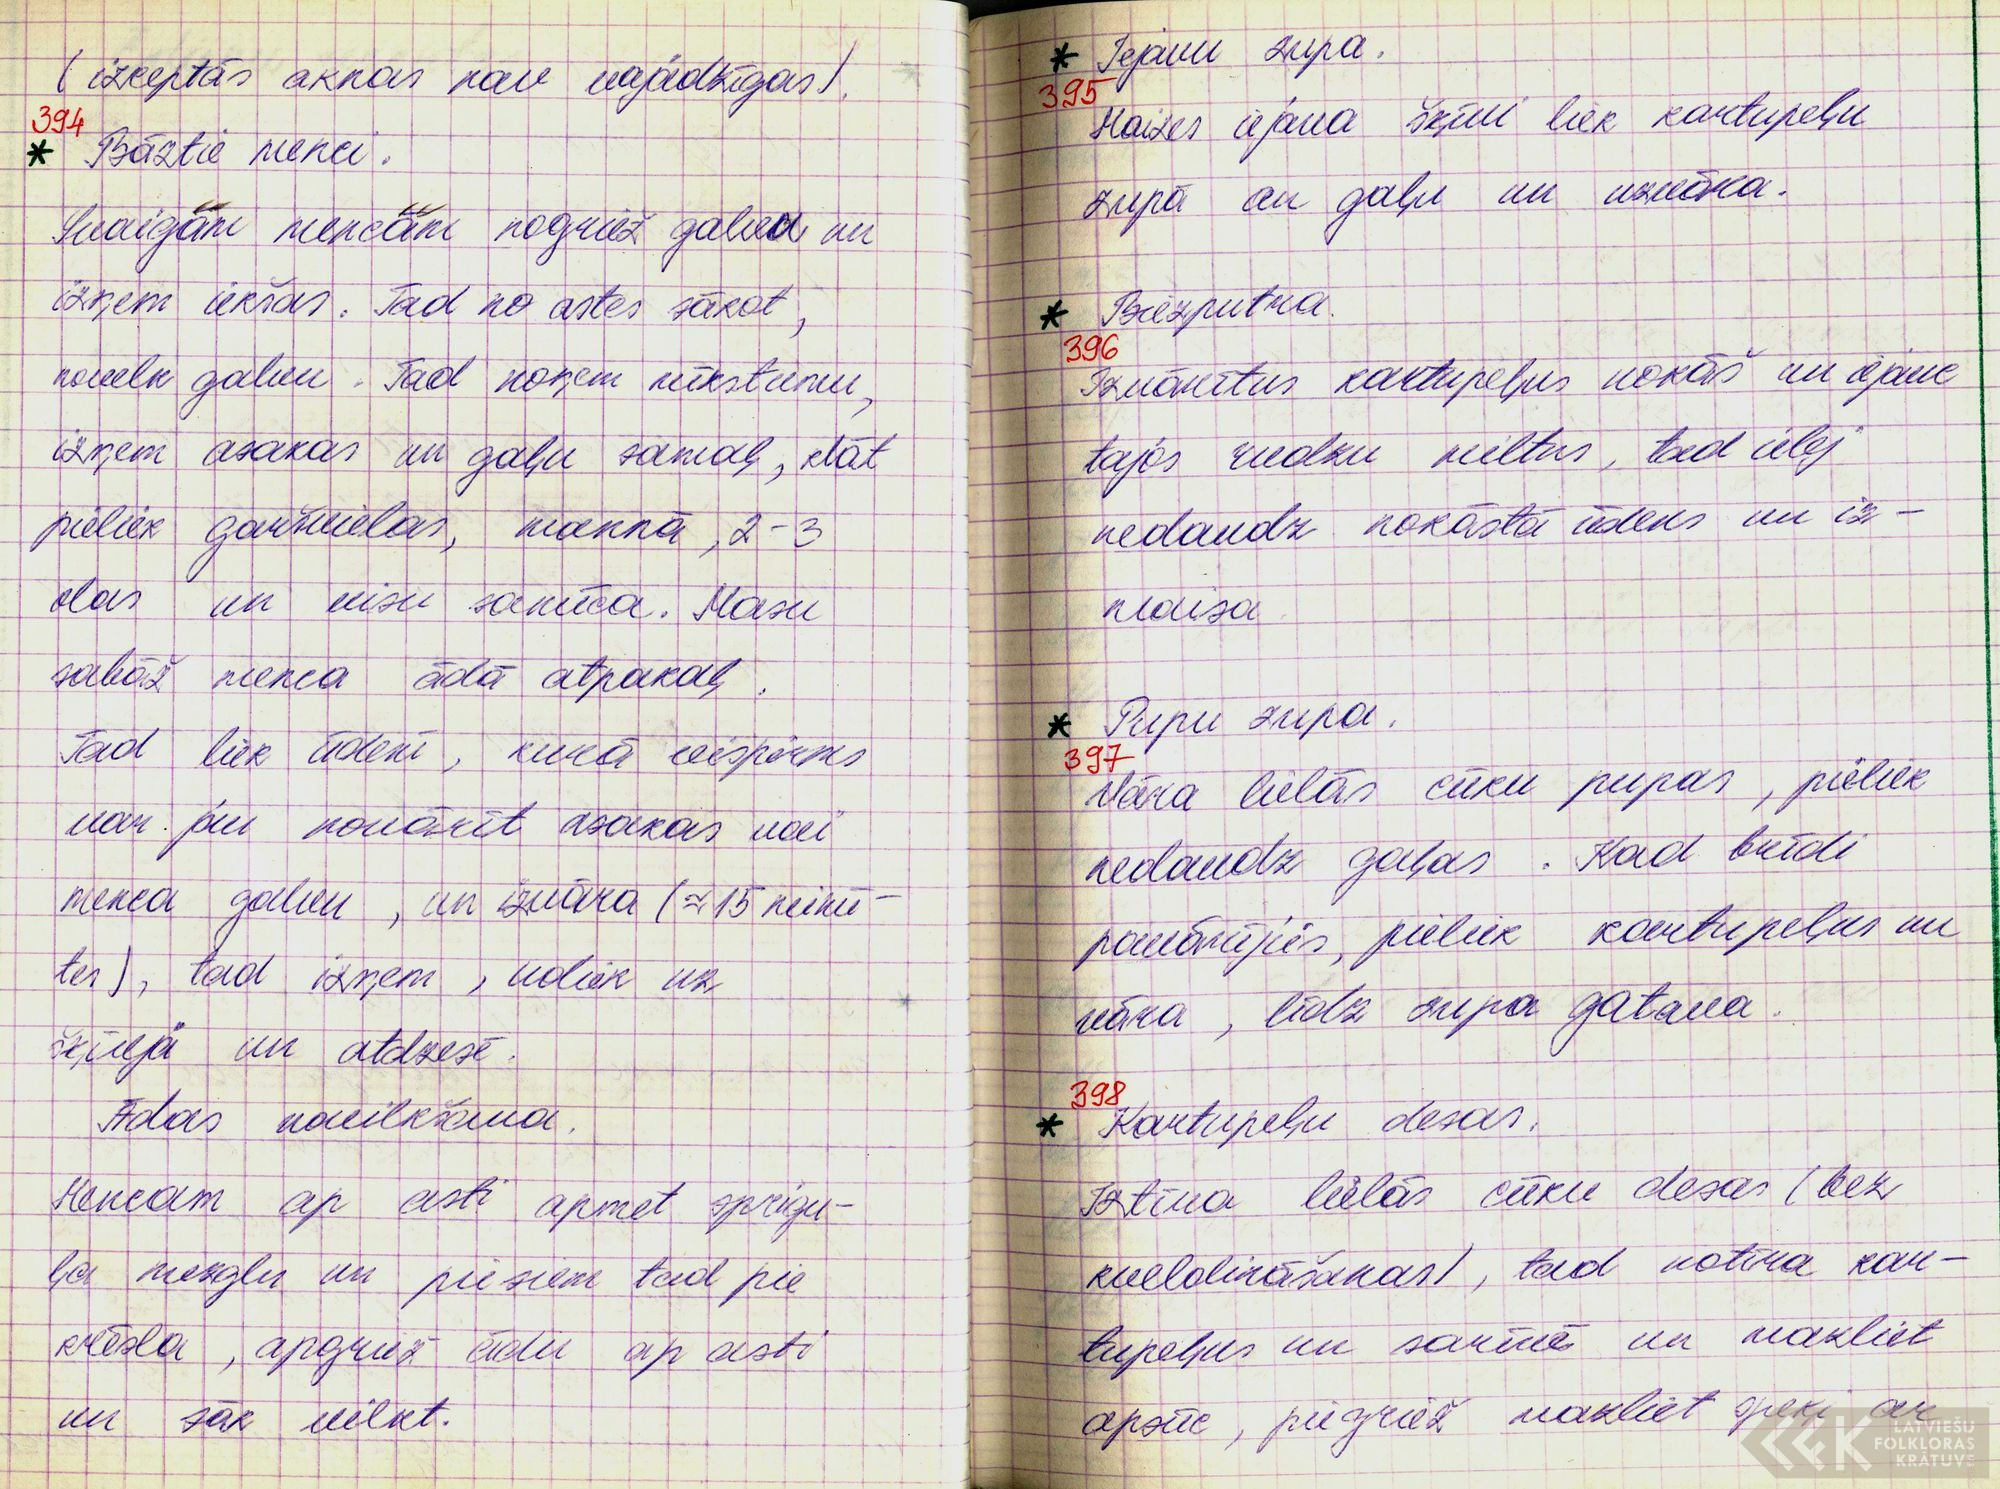 (izceptās aknas nav vajadzīgas).
394
* Bāztie menci.
Svaigām mencām nogriež galvu un
izņem iekšas. Tad no astes sākot,
novelk galvu. Tad noņem mīkstumu,
izņem asakas un gaļu samaļ, klāt
pieliek garšvielas, mannā, 2-3
olas un visu samīca. Masu
sabāž menca ādā atpakaļ.
Tad liek ūdenī, kurā vispirms
var jau novārīt asakas vai
menca galvu, un izvāra (≈15 minū-
tes), tad izņem, noliek uz
šķīvjā un atdzesē.
Ādas novilkšana.
Mencam ap asti apmet sprigu-
ļa mezglu un piesien tad pie
krēsla, apgriež ādu ap asti
un sāk vilkt.
* Iejavu zupa.
395
Maizes iejava šķīvi liek kartupeļu
zupā au gaļu un uzvāra.
* Biezputra.
396
Izvārītus kartupeļus nokāš un iejauc
tajos rudzu miltus, tad ielej
nedaudz nokāstā ūdens un iz-
maisa.
* Pupu zupa.
397
Vāra lielās cūku pupas, pieliek
nedaudz gaļas. Kad brīdi
pavārījies, pieliek kartupeļus un
vāra, līdz zupa gatava.
398
* Kartupeļu desas.
Iztīra lielās cūku desas (bez
kveldināšanas), tad notīra kar-
tupeļus un sarīvē un mazliet
apsūc, piegriež mazliet speķi ar
LATVIEŠU
FOLKLORAS
KRĀTUVE